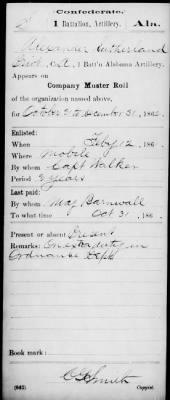 Confederate.
1 Battalion, Artillery. Ala.
Alexander Sutherland
Pvt, Co. A, 1 Batt'n Alabama Artillery.
Appears on
Company Muster Roll
of the organization named above,
for October 9 to December 31, 186
Enlisted:
When Feby 12, 186
Where Mobile
By whom Capt Walker
Period 3 years
Last paid:
By whom Maj Barnwall
To what time Oct 31, 186
Present or absent Present
Remarks: On extra duty in
Ordnance Dept
Book mark:
(642) Copyist.